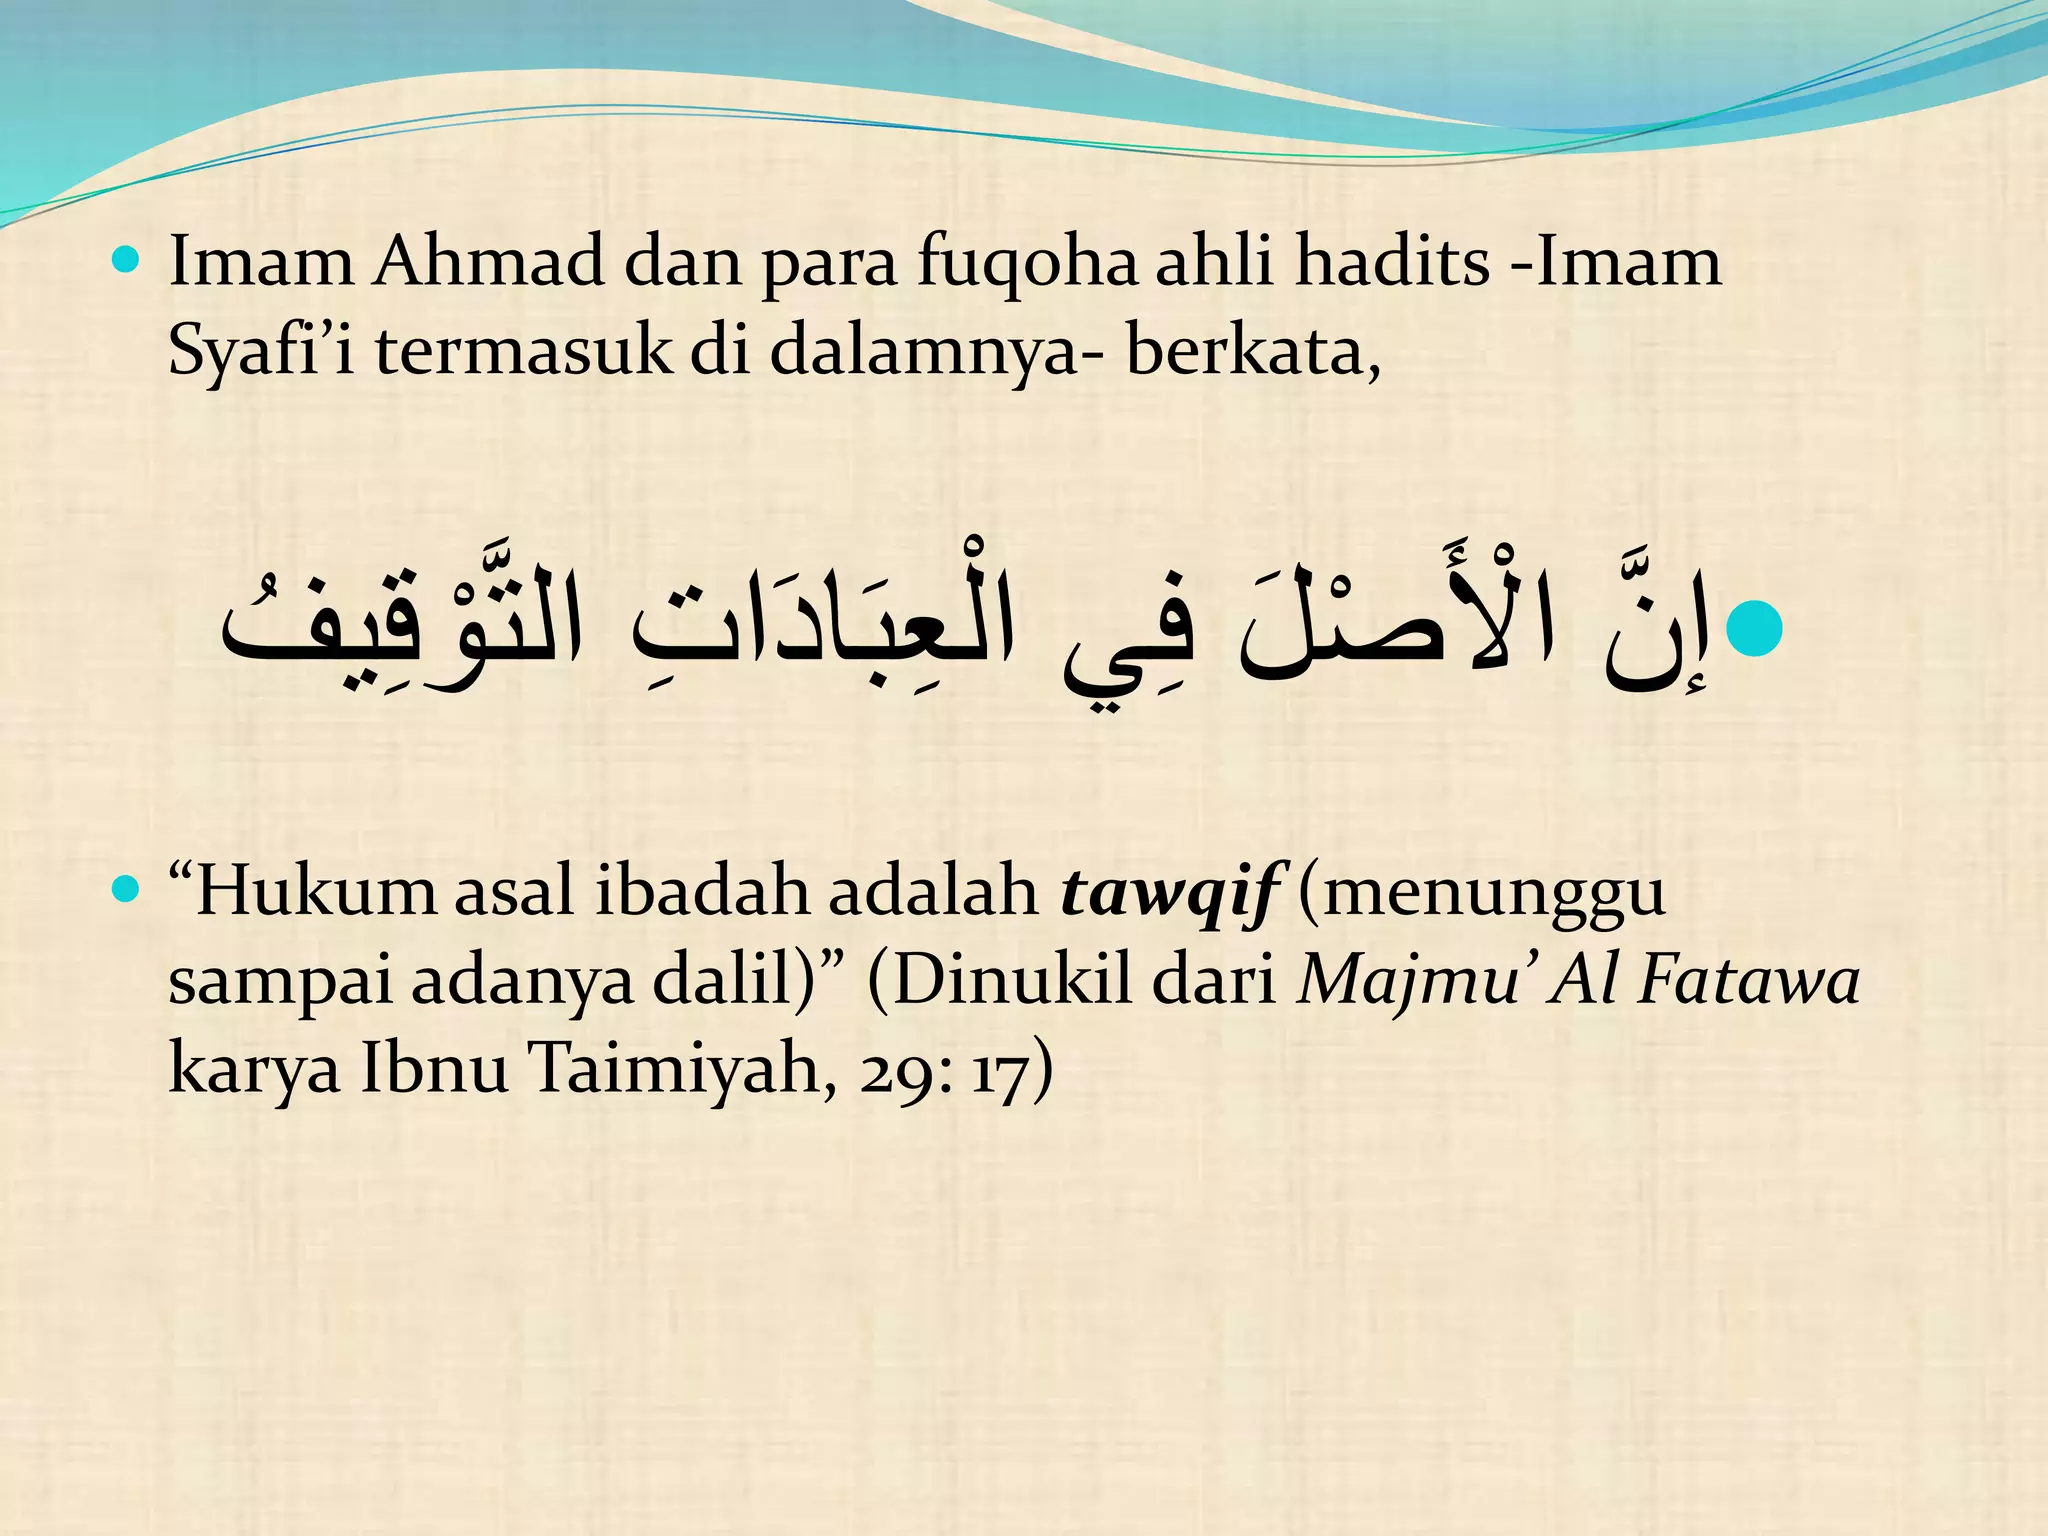 Imam Ahmad dan para fuqoha ahli hadits -Imam
Syafi’i termasuk di dalamnya- berkata,
إنَّ الْأَصْلَ فِي الْعِبَادَاتِ التَّوْقِيفُ
“Hukum asal ibadah adalah tawqif (menunggu
sampai adanya dalil)” (Dinukil dari Majmu’ Al Fatawa
karya Ibnu Taimiyah, 29: 17)